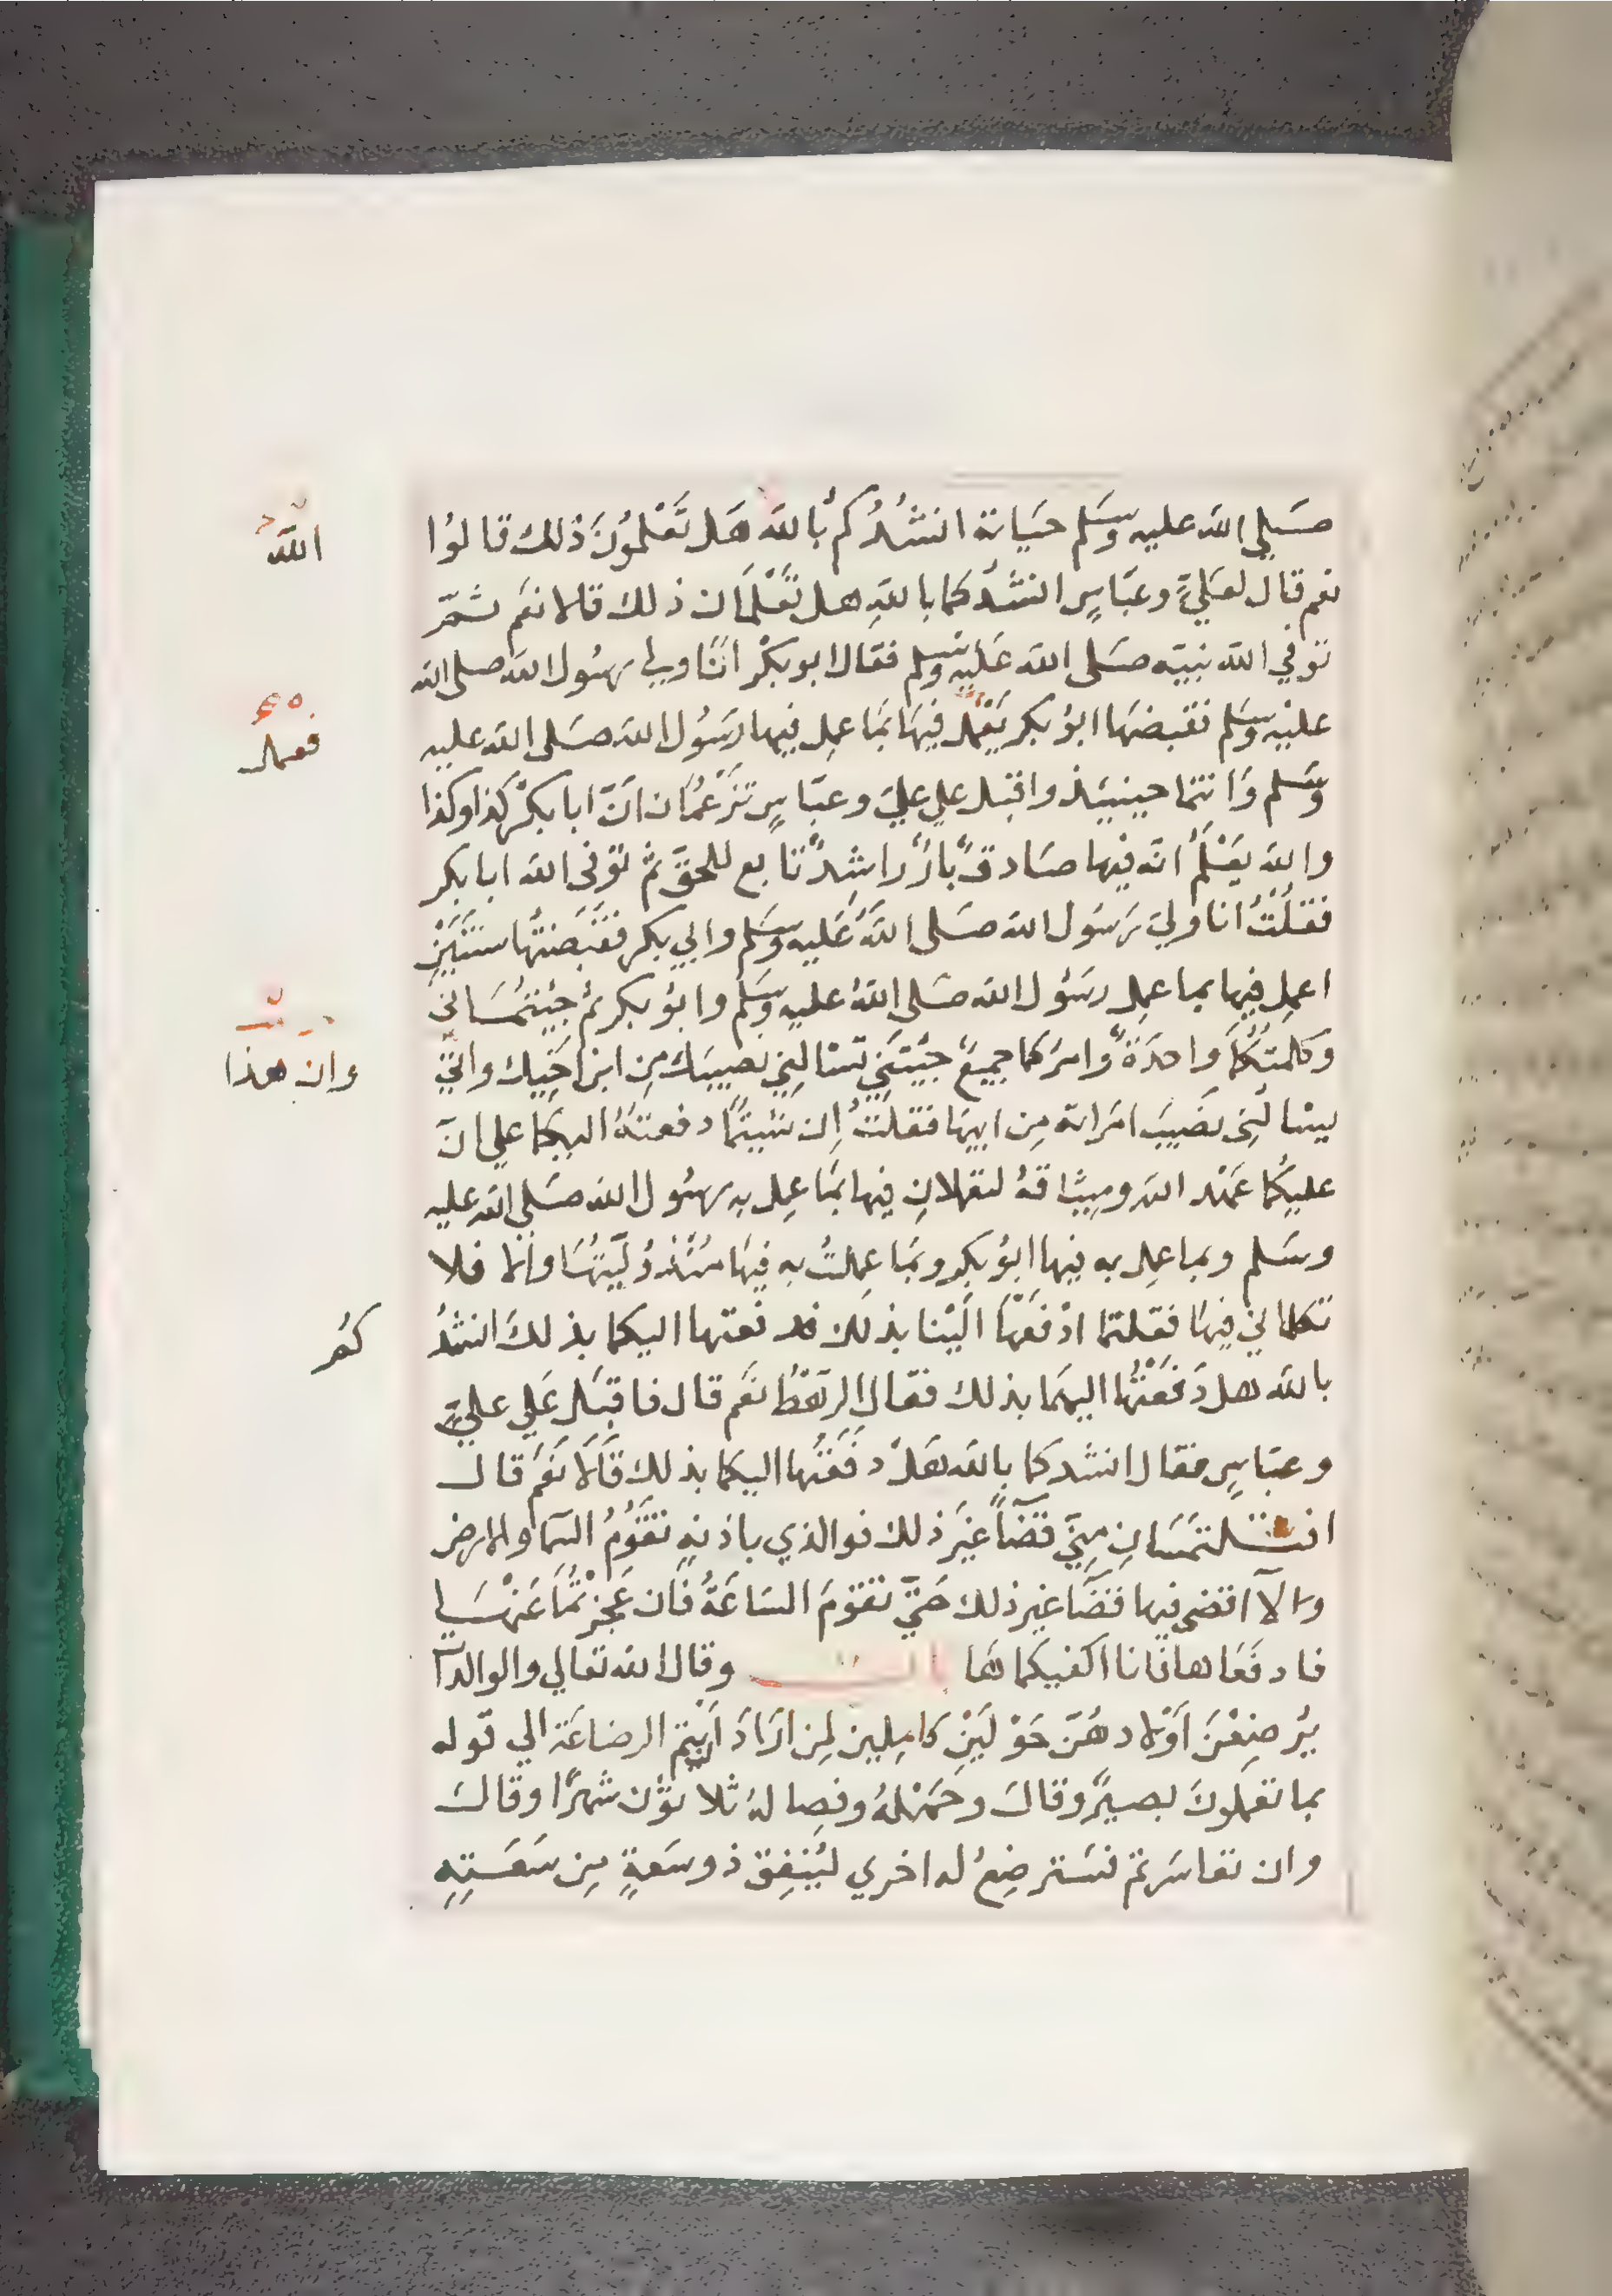 صَلي الله عليه وسَلم حَيَاتهُ انشُدُكم بالله هَل تَعْلمُونَ ذلك قالوُا
الله
نعم قال لعَليٍّ وعبَّاسٍ انشُدُكما باللَّهِ هل تَعْلَمَان ذلك قالا نعَم ثمّ
توفي الله نبيّه صَلى الله عَليْهِ وسَلم فقال ابو بكْر اناَ ولي رسُول الله صلى الله
عليْهِ وسَلم فقبضهَا ابوُ بكرٍ يَعْمَل فيهَا بمَا عمِل فيها رَسُول الله صَلى الله عليه
فعمل
وسَلم وَانتما حينيئذ واقبَل علي عليّ وعبّاسٍ تزْعُمَان انّ ابا بكْر كذا وكذا
والله يَعْلَمُ انّه فيها صَادقٌ بارٌّ راشِدٌ تابع للحقّ ثم توَفى الله ابا بكر
فقلْتُ انا وليّ رَسُول الله صَلى اللهُ عَليه وسَلم وابي بكر فقبَضتُها سنَتَيْنِ
اعمل فيها بما عمِل رسَوُل الله صَلى اللهُ عليه وسَلم وابوُ بكر ثمُ جيْتُمَاني
وكلمتُكُمَا واحدَةٌ وامرُكما جميعٌ جيْتَني تسْالنِي نصيبَك مِن ابن اخيك واتيَ
وان هذا
يسْالنِي نصَيبَ امرَاته مِن ابيهَا فقلتُ إِن شيتُمَا دفعتهُ اليكما علي انّ
عليكُما عَهْد الله ومِيثاقهُ لتعْملانِ فيها بمَا عمِل به رسُول الله صَلى الله عليه
وسَلم وبما عمِل به فيها ابوُ بكرٍ وبمَا عمِلتُ به فيهَا مُنْذُ وُلّيتُهَا والا فلا
تكلماني فيهَا فقلتما ادْفَعْهَا اليْنا بذلك فدفعتها اليكما بذلكَ انشدُ
كُم
بالله هل دَفعْتُها اليهمَا بذلك فقال الرّهْطُ نعَم قال فاقبَل عَلي عليٍّ
وعبّاسٍ فقال انشدكما بِالله هَلْ دفَعْتُها اليكما بذلك قَالَا نَعَم قال
افتلتمسَانِ مِنيّ قضَاً غيرَ ذلك فوالذي باذنهِ تقَوُمُ السَّما والارض
والا اقضى فيها قضَاً غير ذلك حَتيّ تقوُمَ السَاعَةُ فَان عَجَزْتُمَا عَنْهَا
فادفعَاها فانا اكفيكماها وقال الله تعالي والوالدات
يُرضِعْنَ اَوْلادهُنّ حَوْلَيْنِ كامِليين لِمَن ارَادَ اَن يتم الرضاعَة الي قوله
بما تعملونَ بصيرٌ وقال وحَمْلهُ وفصالهُ ثلاثوُن شهرًا وقالَ
وان تعاسَرتم فسَترضِعُ له اخري ليُنفِق ذو سَعةٍ مِن سَعَتِهِ